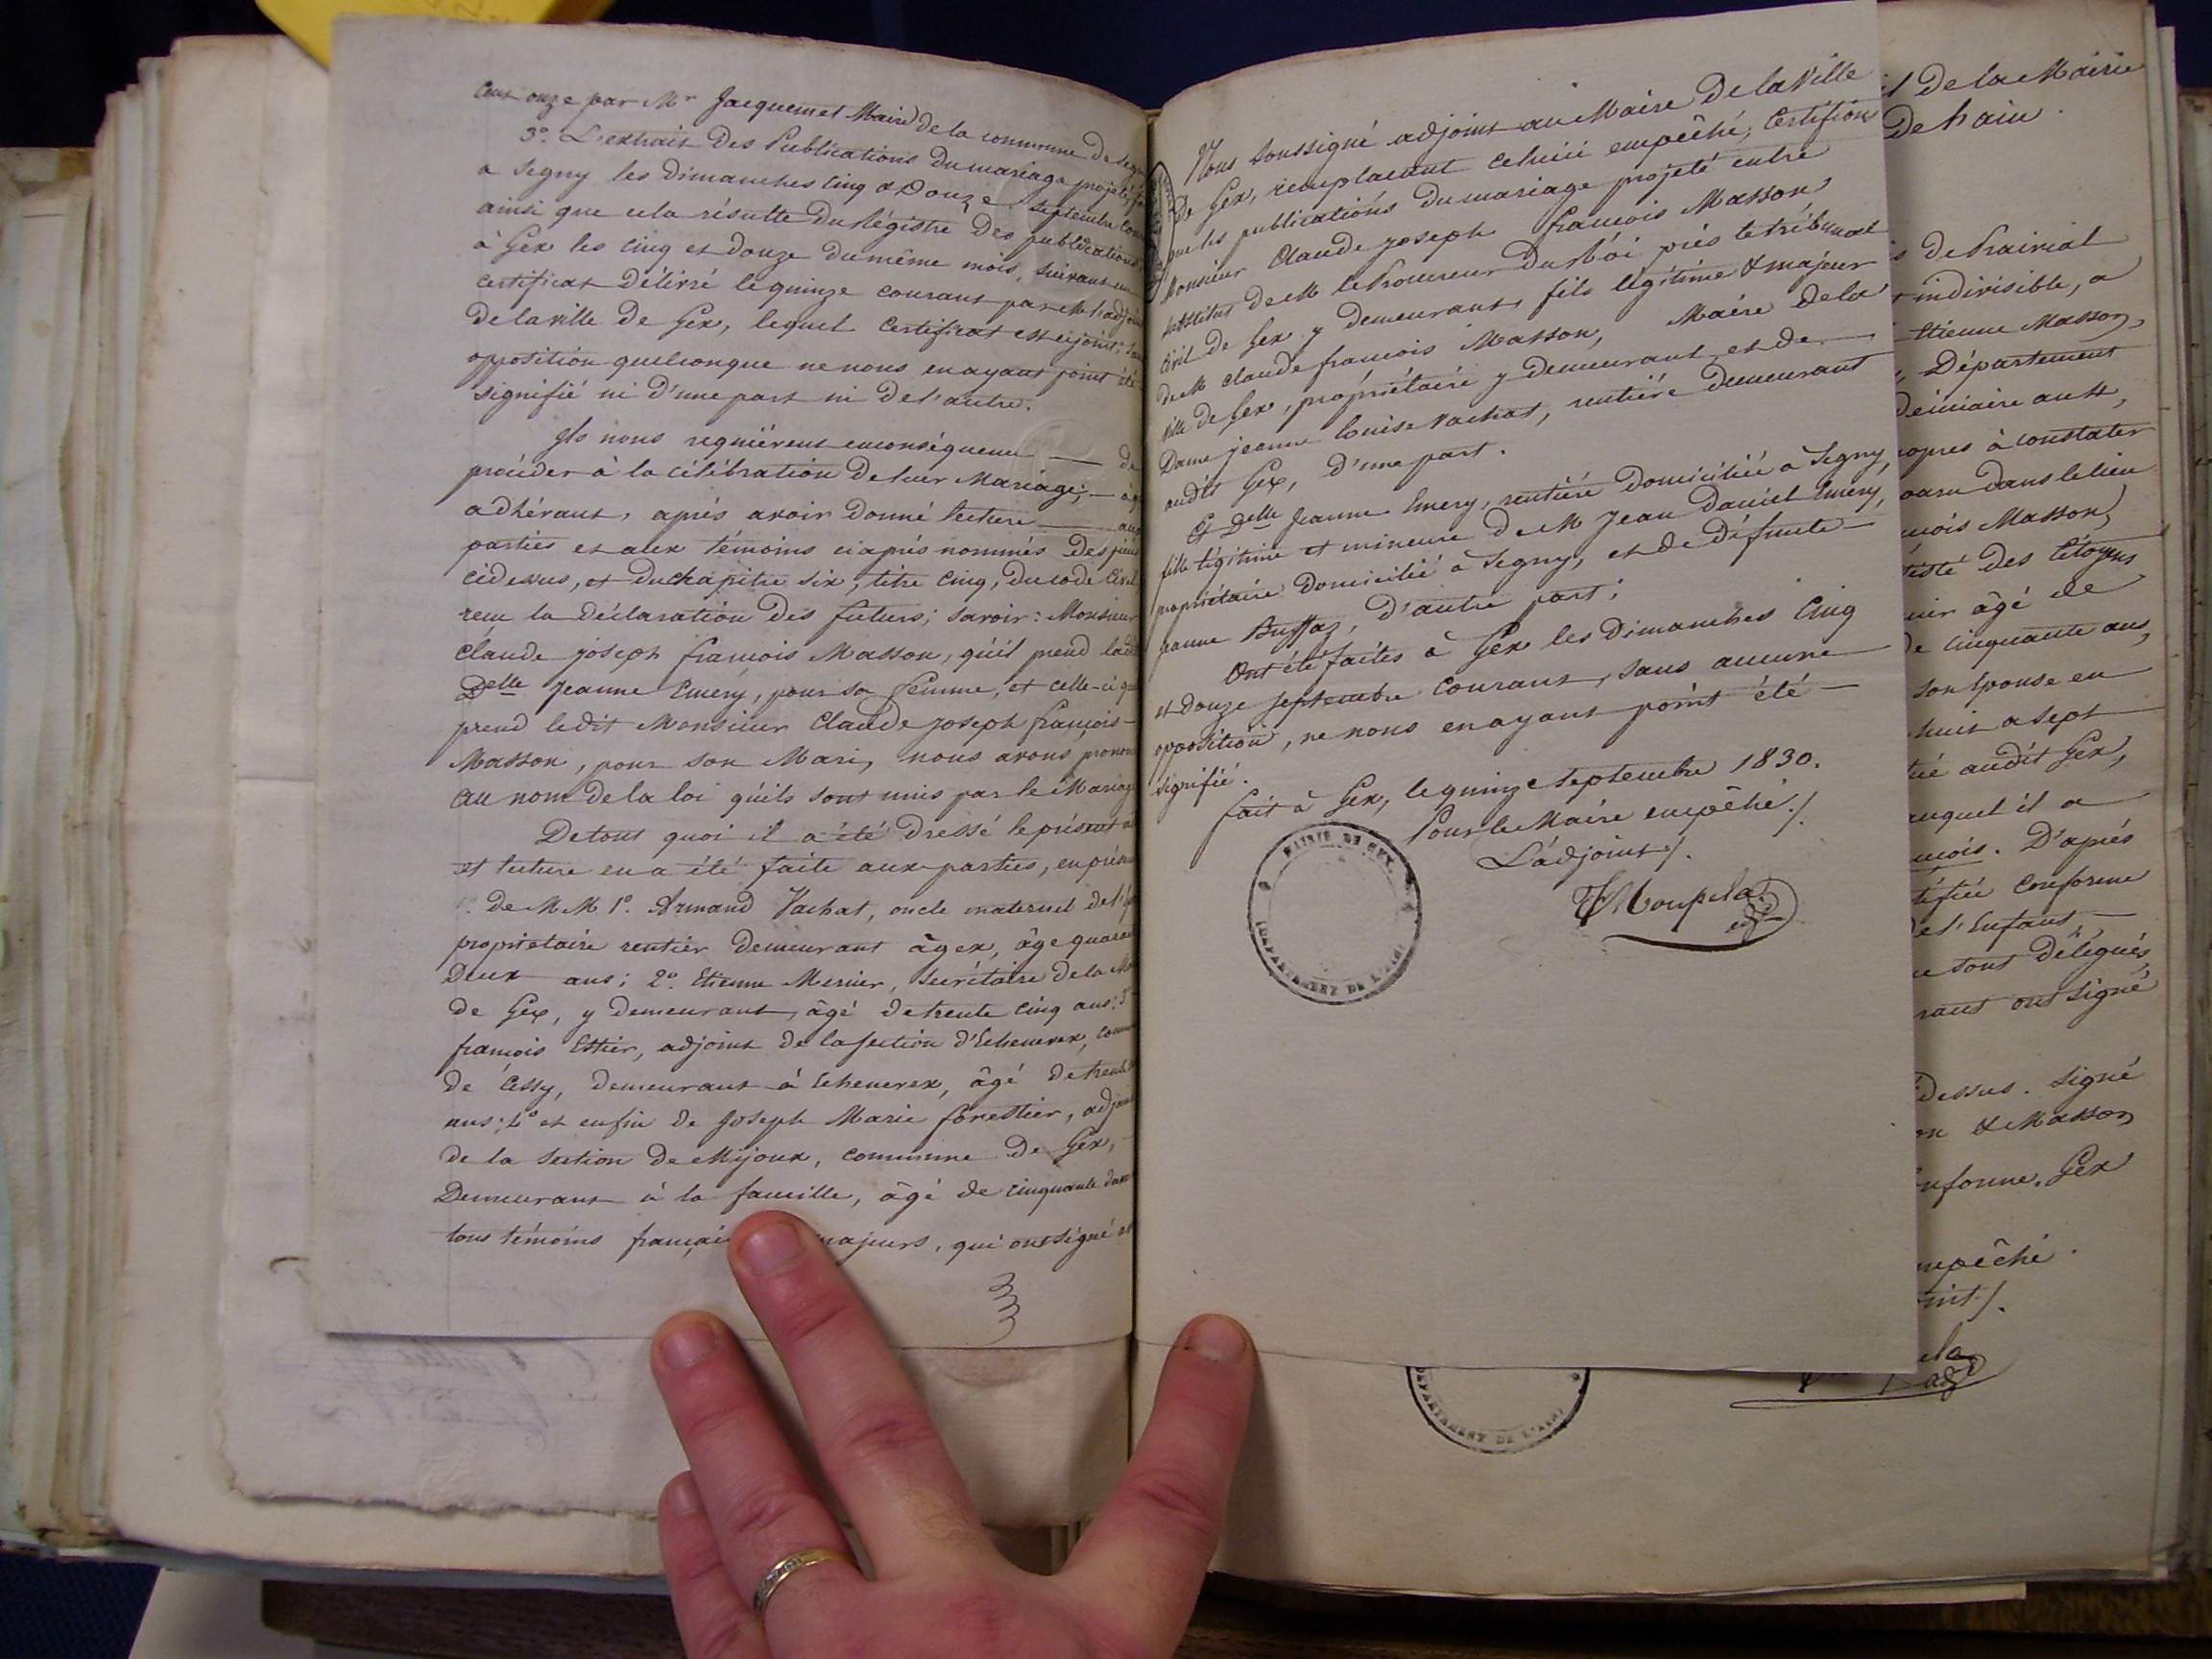 Cent onze par Mr Jacquemet Maire de la commune de Segny
3º. L'extrait des Publications du mariage projeté,
a Segny les dimanches cinq & Douze septembre
ainsi que cela résulte du Régistre des publications
à Gex les cinq et douze du même mois, suivant un
certificat délivré le quinze courant par Mr l'adjoint
de la ville de Gex, lequel Certificat est ci joint;
opposition quelconque ne nous en ayant point été
signifié ni d'une part ni de l'autre.
Ils nous requièrent en conséquence — de
procéder à la célébration de leur Mariage; —
adhérant, après avoir donné lecture — aux
parties et aux témoins ci après nommés des
cidessus, et du chapitre six, titre cinq, du code Civil
reçu la déclaration des futurs; savoir: Monsieur
Claude joseph françois Masson, qu'il prend ladite
Delle Jeanne Emery, pour sa femme, et celle-ci
prend ledit Monsieur Claude joseph françois-
Masson, pour son Mari, nous avons
au nom de la loi qu'ils sont unis par le Mariage
De tout quoi il a été dressé le présent
et lecture en a été faite aux parties, en
de MM 1º. Armand Vachat, oncle maternel de
propriétaire rentier demeurant à gex, âgé
Deux ans; 2º. Etienne Mernier, Secrétaire de la
de Gex, y demeurant, âgé de trente cinq ans; 3º
françois Estier, adjoint de la section d'Echenevex,
de Cessy, demeurant à Echenevex, âgé de
ans; 4º et enfin de Joseph Marie forestier,
de la section de Mijoux, commune de Gex, -
Demeurant à la faucille, âgé de cinquante
tous témoins majeurs, qui ont signé
Nous Soussigné adjoint au Maire de la Ville
de Gex, remplacant celuici empêché, Certifions
que les publications du mariage projeté entre
Monsieur Claude joseph françois Masson,
substitut de M le Procureur du Roi près le tribunal
Civil de Gex y demeurant, fils légitime & majeur
de M claude françois Masson, Maire de la
ville de Gex, propriétaire y demeurant, et de —
Dame jeanne Louise Vachat, rentière demeurant
audit Gex, d'une part.
Et Delle Jeanne Emery, rentière domiciliée à Segny,
fille légitime et mineure de M Jean Daniel Emery,
propriétaire domicilié à Segny, et de défunte —
Jeanne Buffaz, d'autre part;
Ont été faites à Gex les Dimanches Cinq
et Douze septembre Courant, sans aucune
opposition, ne nous en ayant point été —
signifié.
fait à Gex, le quinze septembre 1830.
Pour le Maire empêché./.
L'adjoint./.
MAIRIE DE GEX.
(DEPARTEMENT DE L'AIN)
de la Mairie
de Prairial
indivisible, a
Etienne Masson,
Département
à constater
dans le lieu
Masson,
des Citoyens
âgé de
cinquante ans,
son épouse en
huit a sept
audit Gex,
auquel il a
D'après
conforme
de l'Enfant, —
sont délégués,
ont signé
dessus. signé
& Masson,
Gex
DEPARTEMENT DE L'AIN)